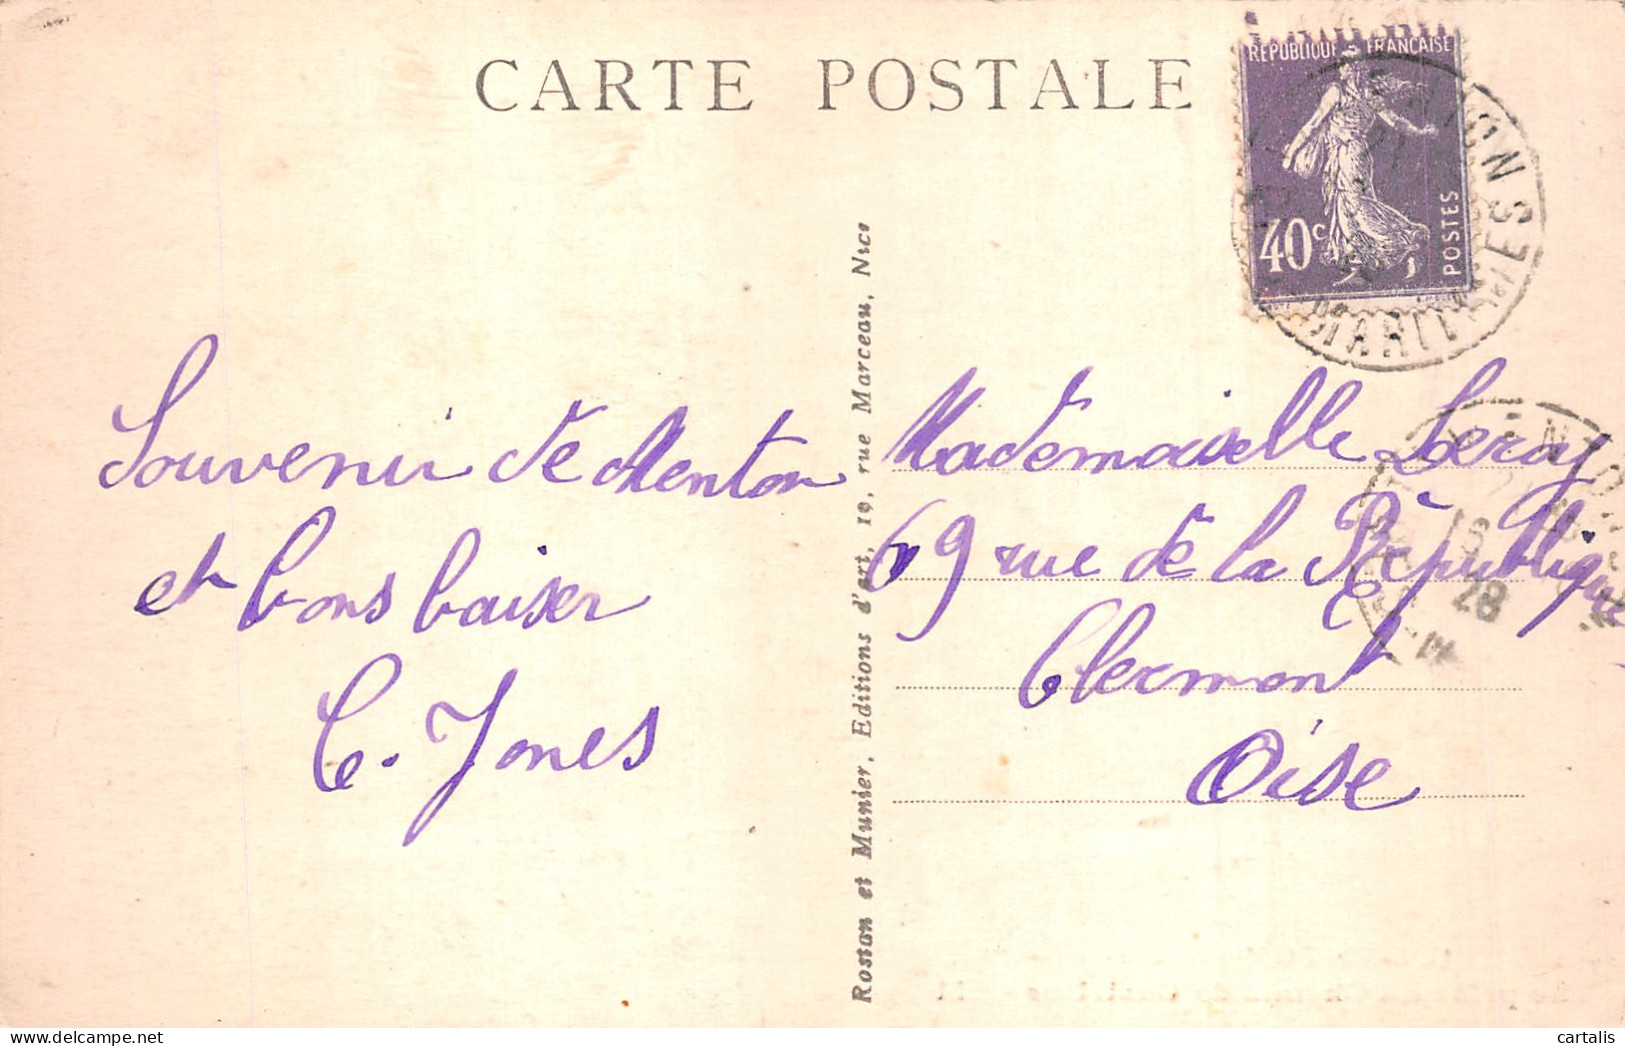 CARTE POSTALE
REPUBLIQUE FRANCAISE
40c
POSTES
MENTON
ALPES MARITIMES
28
Souvenir de Menton
et bons baiser
C. Jones
Rostan et Munier, Editions d'art, 19, rue Marceau, Nice
Mademoiselle Leroy
69 rue de la République
Clermont
Oise
cartalis